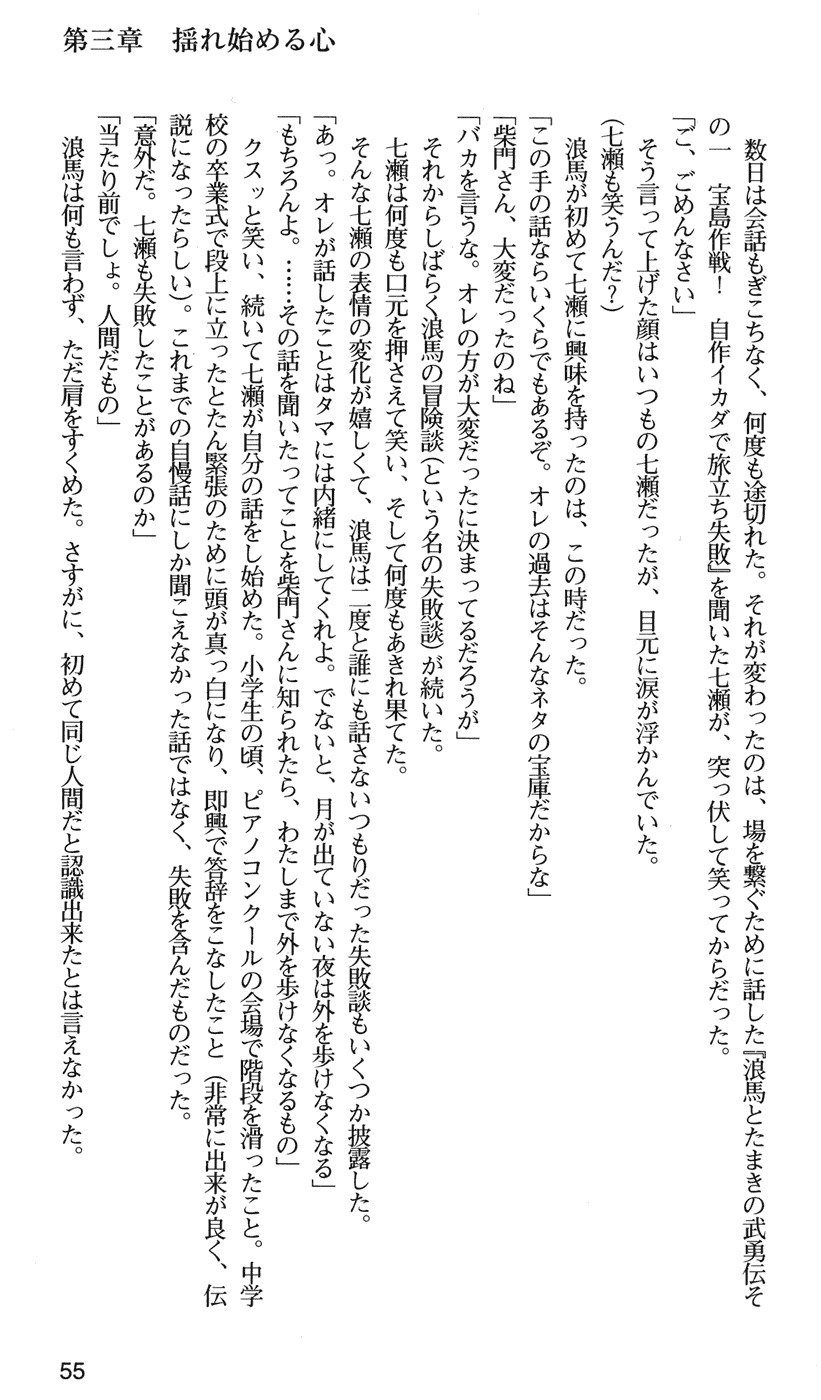 第三章　揺れ始める心
　数日は会話もぎこちなく、何度も途切れた。それが変わったのは、場を繋ぐために話した『浪馬とたまきの武勇伝そ
の一　宝島作戦！　自作イカダで旅立ち失敗』を聞いた七瀬が、突っ伏して笑ってからだった。
「ご、ごめんなさい」
　そう言って上げた顔はいつもの七瀬だったが、目元に涙が浮かんでいた。
(七瀬も笑うんだ？)
　浪馬が初めて七瀬に興味を持ったのは、この時だった。
「この手の話ならいくらでもあるぞ。オレの過去はそんなネタの宝庫だからな」
「柴門さん、大変だったのね」
「バカを言うな。オレの方が大変だったに決まってるだろうが」
　それからしばらく浪馬の冒険談(という名の失敗談)が続いた。
　七瀬は何度も口元を押さえて笑い、そして何度もあきれ果てた。
　そんな七瀬の表情の変化が嬉しくて、浪馬は二度と誰にも話さないつもりだった失敗談もいくつか披露した。
「あっ。オレが話したことはタマには内緒にしてくれよ。でないと、月が出ていない夜は外を歩けなくなる」
「もちろんよ。……その話を聞いたってことを柴門さんに知られたら、わたしまで外を歩けなくなるもの」
　クスッと笑い、続いて七瀬が自分の話をし始めた。小学生の頃、ピアノコンクールの会場で階段を滑ったこと。中学
校の卒業式で段上に立ったとたん緊張のために頭が真っ白になり、即興で答辞をこなしたこと（非常に出来が良く、伝
説になったらしい）。これまでの自慢話にしか聞こえなかった話ではなく、失敗を含んだものだった。
「意外だ。七瀬も失敗したことがあるのか」
「当たり前でしょ。人間だもの」
　浪馬は何も言わず、ただ肩をすくめた。さすがに、初めて同じ人間だと認識出来たとは言えなかった。
55